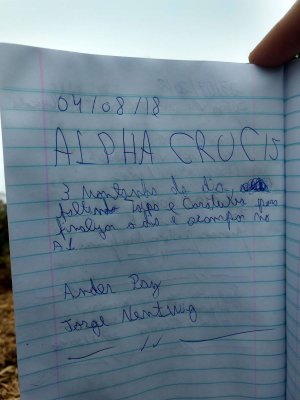 04/08/18
ALPHA CRUCIS
3 Montanhas do dia,
faltando Tapa e Caratuba para
finalizar o dia e acampar no
A1.
Ander Paz
Jorge Nentwig